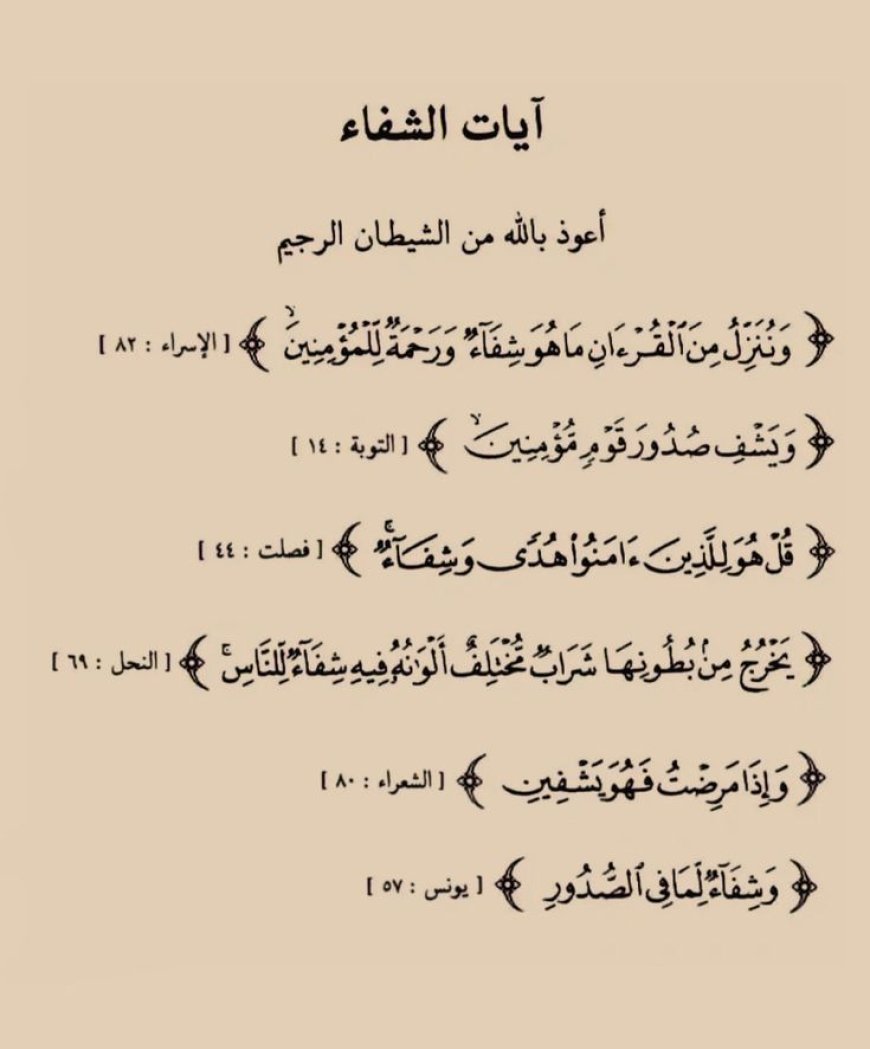 آيات الشفاء
أعوذ بالله من الشيطان الرجيم
﴿ وَنُنَزِّلُ مِنَ ٱلْقُرْءَانِ مَا هُوَ شِفَآءٌ وَرَحْمَةٌ لِّلْمُؤْمِنِينَۙ ﴾ [ الإسراء : ٨٢ ]
﴿ وَيَشْفِ صُدُورَ قَوْمٍ مُّؤْمِنِينَۙ ﴾ [ التوبة : ١٤ ]
﴿ قُلْ هُوَ لِلَّذِينَ ءَامَنُوا۟ هُدًى وَشِفَآءٌۚ ﴾ [ فصلت : ٤٤ ]
﴿ يَخْرُجُ مِنۢ بُطُونِهَا شَرَابٌ مُّخْتَلِفٌ أَلْوَٰنُهُۥ فِيهِ شِفَآءٌ لِّلنَّاسِۚ ﴾ [ النحل : ٦٩ ]
﴿ وَإِذَا مَرِضْتُ فَهُوَ يَشْفِينِ ﴾ [ الشعراء : ٨٠ ]
﴿ وَشِفَآءٌ لِّمَا فِى ٱلصُّدُورِ ﴾ [ يونس : ٥٧ ]